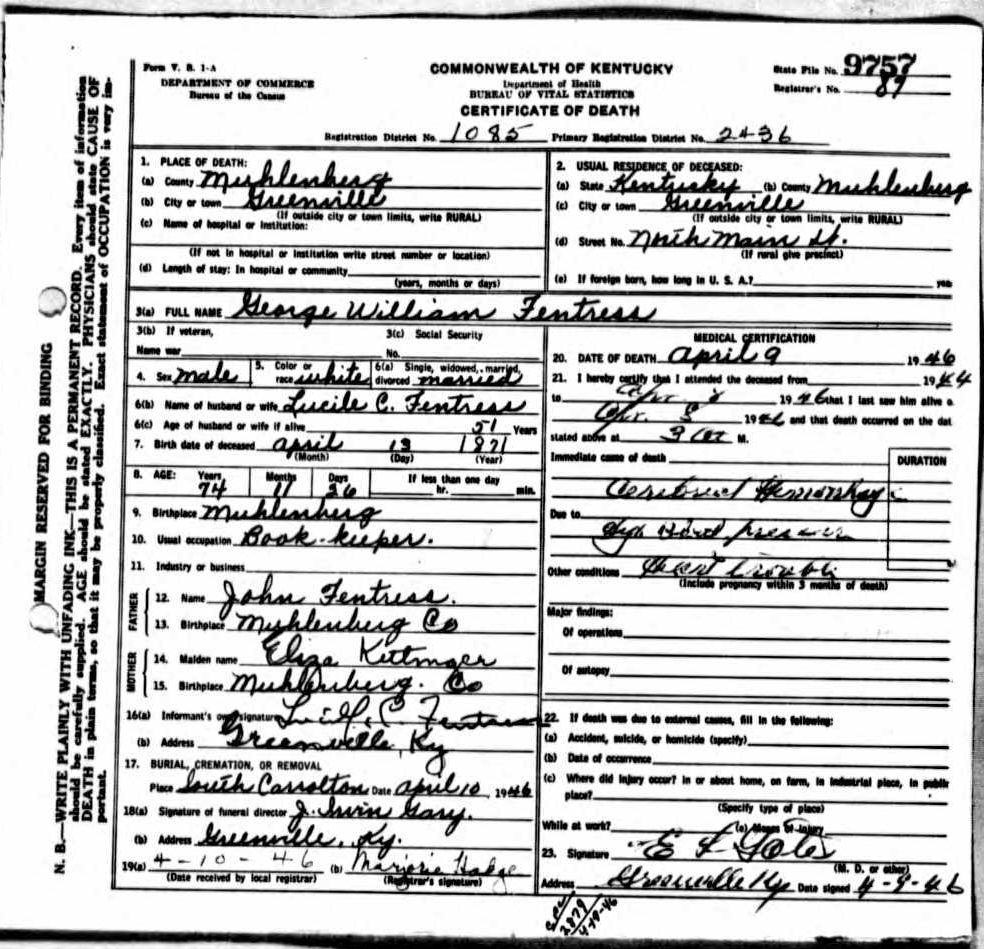 Form V. S. 1-A
DEPARTMENT OF COMMERCE
Bureau of the Census
COMMONWEALTH OF KENTUCKY
Department of Health
BUREAU OF VITAL STATISTICS
CERTIFICATE OF DEATH
State File No. 9757
Registrar's No. 87
Registration District No. 1085 Primary Registration District No. 2436
1. PLACE OF DEATH:
(a) County Muhlenberg
(b) City or town Greenville
(If outside city or town limits, write RURAL)
(c) Name of hospital or institution:
(If not in hospital or institution write street number or location)
(d) Length of stay: In hospital or community
(years, months or days)
2. USUAL RESIDENCE OF DECEASED:
(a) State Kentucky (b) County Muhlenberg
(c) City or town Greenville
(If outside city or town limits, write RURAL)
(d) Street No. North Main St.
(If rural give precinct)
(e) If foreign born, how long in U. S. A.? yea
3(a) FULL NAME George William Fentress
3(b) If veteran,
Name war
3(c) Social Security
No.
4. Sex male
5. Color or race white
6(a) Single, widowed, married, divorced married
6(b) Name of husband or wife Lucile C. Fentress
6(c) Age of husband or wife if alive 51 Years
7. Birth date of deceased April 13 1871
(Month) (Day) (Year)
8. AGE: Years Months Days If less than one day
74 11 26 hr. min.
9. Birthplace Muhlenberg
10. Usual occupation Book-keeper.
11. Industry or business
FATHER
12. Name John Fentress.
13. Birthplace Muhlenberg Co
MOTHER
14. Maiden name Eliza Kittinger
15. Birthplace Muhlenberg. Co
16(a) Informant's own signature Lucile C. Fentress
(b) Address Greenville, Ky
17. BURIAL, CREMATION, OR REMOVAL
Place South Carrolton Date April 10, 1946
18(a) Signature of funeral director J. Irvin Gary.
(b) Address Greenville, Ky.
19(a) 4-10-46 (b) Marjorie Hodge
(Date received by local registrar) (Registrar's signature)
MEDICAL CERTIFICATION
20. DATE OF DEATH April 9 1946
21. I hereby certify that I attended the deceased from 1944
to Apr 1946 that I last saw him alive o
Apr. 1946 and that death occurred on the dat
stated above at 3 M.
Immediate cause of death
DURATION
Cerebral Hemorrhage
Due to
High Blood pressure
Other conditions Heart trouble
(Include pregnancy within 3 months of death)
Major findings:
Of operations
Of autopsy
22. If death was due to external causes, fill in the following:
(a) Accident, suicide, or homicide (specify)
(b) Date of occurrence
(c) Where did injury occur? In or about home, on farm, in industrial place, in public
place?
(Specify type of place)
While at work? (e) Means of injury
23. Signature E L Gates
(M. D. or other)
Address Greenville Ky Date signed 4-9-46
3879
4-19-46
MARGIN RESERVED FOR BINDING
N. B.—WRITE PLAINLY WITH UNFADING INK—THIS IS A PERMANENT RECORD. Every item of information
should be carefully supplied. AGE should be stated EXACTLY. PHYSICIANS should state CAUSE OF
DEATH in plain terms, so that it may be properly classified. Exact statement of OCCUPATION is very im-
portant.